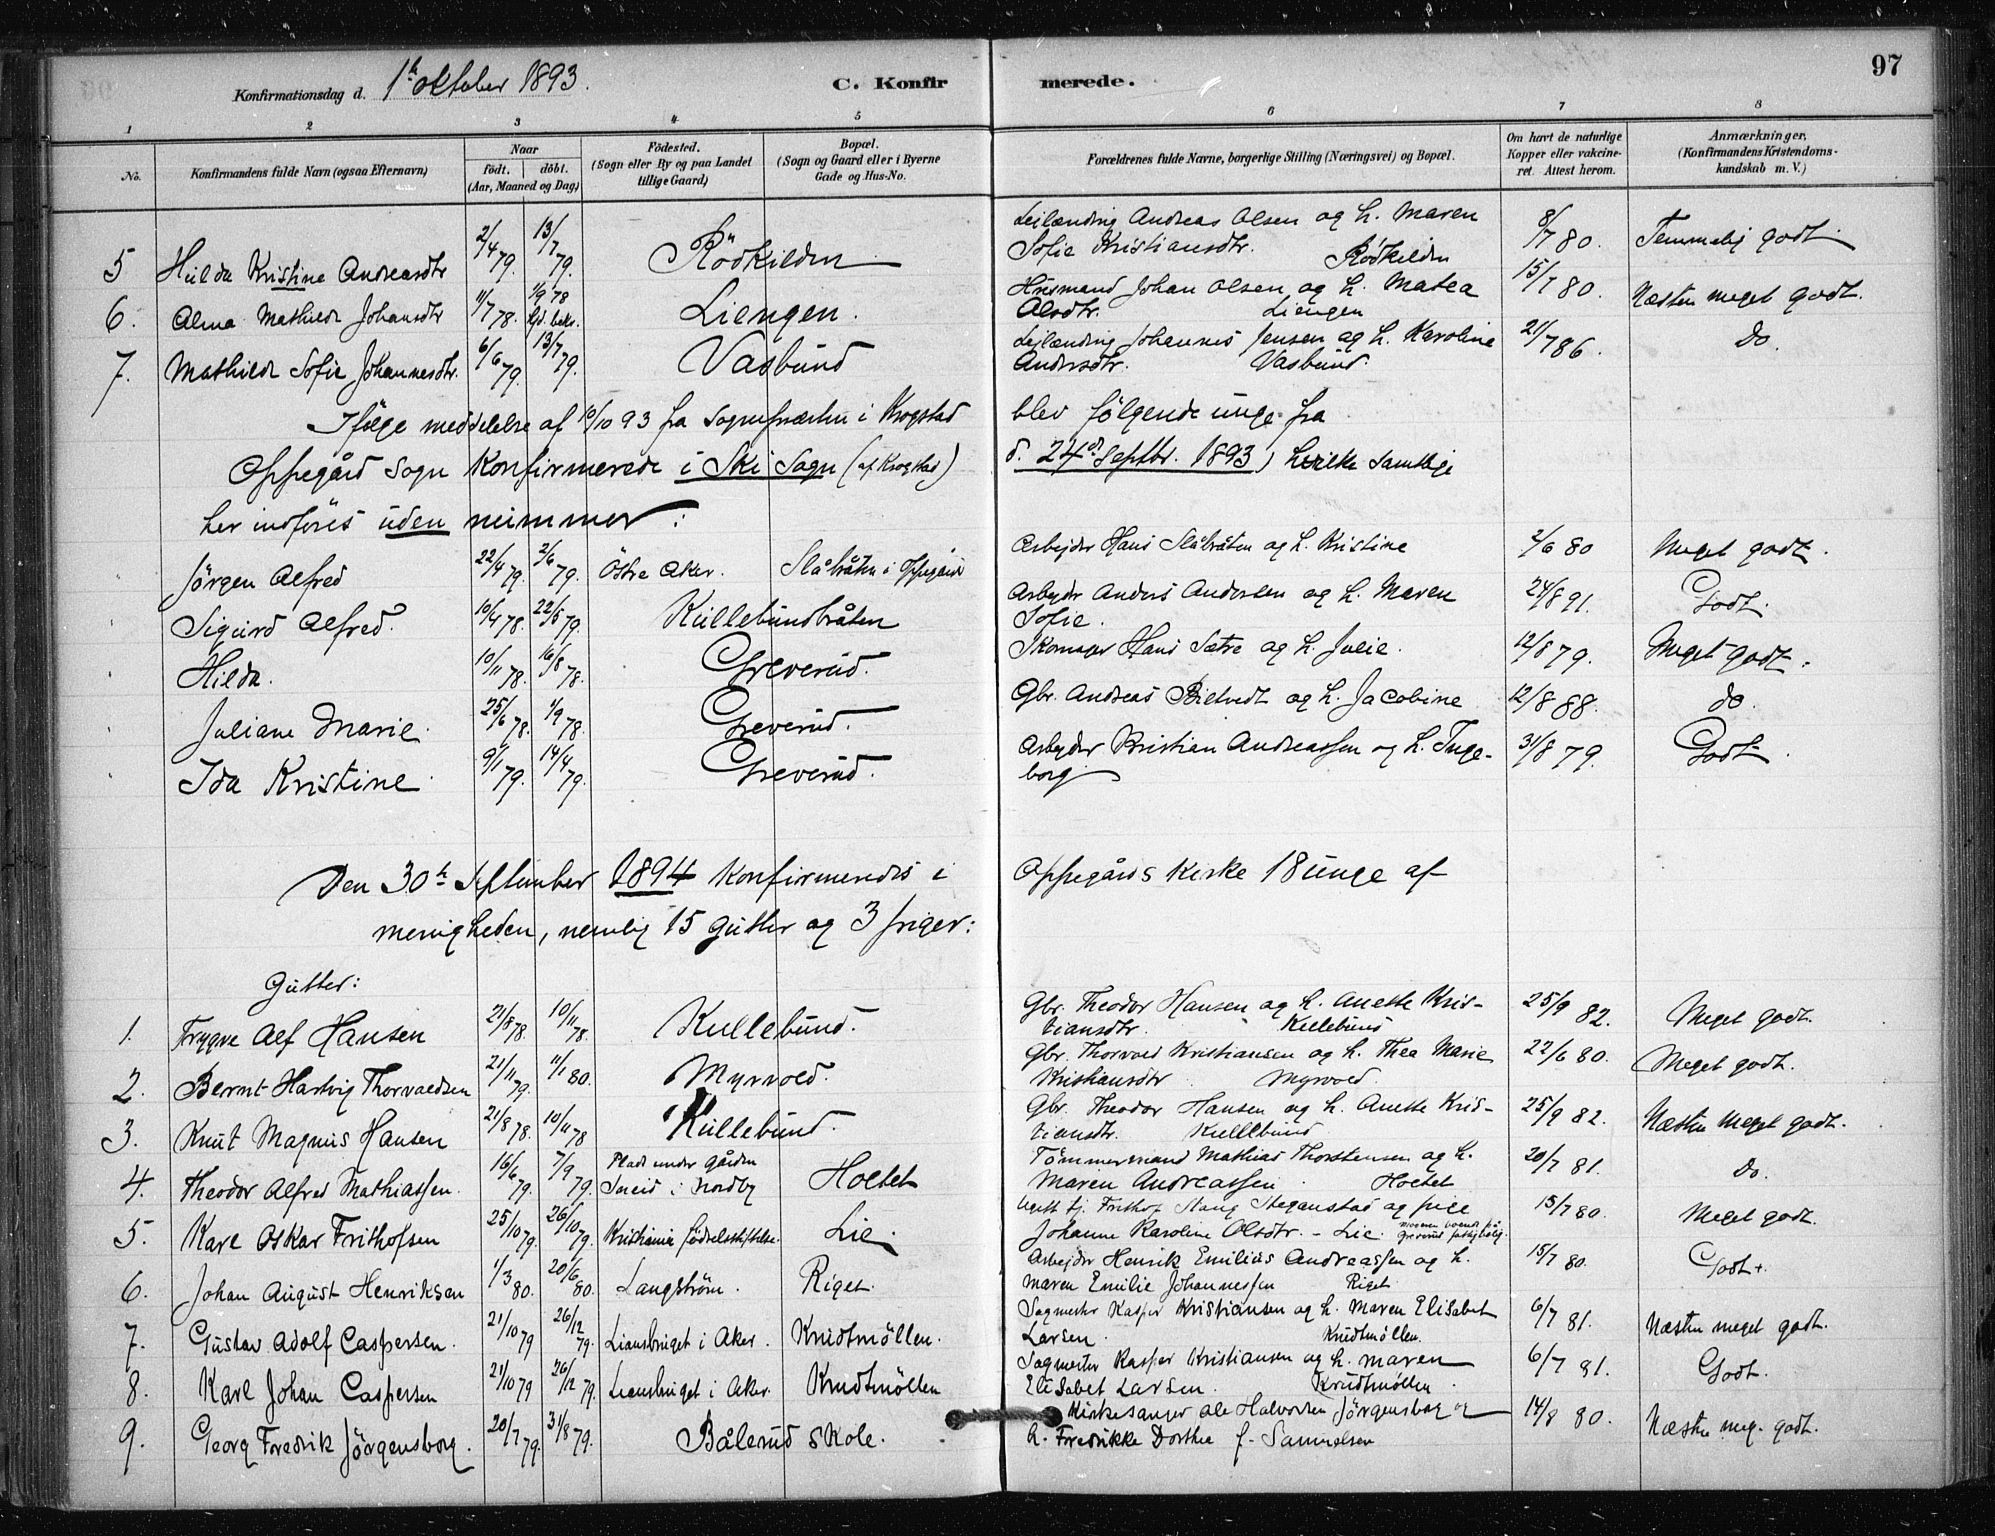 97
Konfirmationsdag d. 1ste oktober 1893.
C. Konfirmerede.
1 2 3 4 5 6 7 8
No. Konfirmandens fulde Navn (ogsaa Efternavn) Naar født. døbt. (Aar, Maaned og Dag) Fødested. (Sogn eller By og paa Landet tillige Gaard) Bopæl. (Sogn og Gaard eller i Byerne Gade og Hus-No. Forældrenes fulde Navne, borgerlige Stilling (Næringsvei) og Bopæl. Om havt de naturlige Kopper eller vakcineret. Attest herom. Anmærkninger. (Konfirmandens Kristendomskundskab m. V.)
5 Hilda Kristine Andreasdtr 2/4 79. 13/7 79. Rödkilden Leilænding Andreas Olsen og h. Maren 8/7 80. Temmelig godt.
Sofie Kristiansdtr. Rödkilden
6. Alma Mathilde Johansdtr 11/7 78. 1/9 78 Liengen. Husmand Johan Olsen og h. Matea 15/7 80. Næsten meget godt.
Olsdtr. Liengen
7. Mathilde Sofie Johannesdtr. 6/6 79. 13/7 79. Vasbund Leilænding Johannes Jensen og h. Karoline 21/7 86. Do
Andersdtr. Vasbund.
Ifölge meddelelse af 10/10 93 fra Sognepræsten i Krogstad blev følgende unge fra
Oppegård Sogn konfirmerede i Ski Sogn (af Krogstad) d. 24de Septbr. 1893, hvilke samtlige
her indföres uden nummer:
Jörgen Alfred 22/4 79. 2/6 79. Östre Aker. Slåbråten i Oppegård Arbejder Hans Slåbråten og h. Kristine 2/6 80 Meget godt.
Sigurd Alfred. 10/4 78. 22/5 79. Kullebundbråten Arbejder Anders Andersen og h. Maren 24/8 91. Godt.
Sofie.
Hilda. 10/11 78. 16/8 78. Greverud. Skomager Hans Sætre og h. Julie. 12/8 79. Meget godt.
Juliane Marie. 25/6 78. 1/9 78. Greverud. Gbr. Andreas Bietvedt og h. Jacobine 12/8 88. do.
Ida Kristine 9/1 79. 14/4 79. Greverud. Arbejder Kristian Andreassen og h. Inge- 31/8 79. Godt.
borg
Den 30te September 1894 konfirmeredes i Oppegårds Kirke 18 unge af
menigheden, nemlig 15 gutter og 3 piger:
Gutter:
1. Trygve Alf Hansen 21/8 78. 10/11 78. Kullebund. Gbr. Theodor Hansen og h. Anette Kris- 25/9 82. Meget godt.
tiansdtr. Kullebund
2. Bernt Hartvig Thorvaldsen 21/11 79. 11/1 80. Myrvold. Gbr. Thorvald Kristiansen og h. Thea Marie 22/6 80. Meget godt.
Kristiansdtr Myrvold.
3. Knut Magnus Hansen 21/8 78. 10/11 78 Kullebund. Gbr. Theodor Hansen og h. Anette Kris- 25/9 82. Næsten meget godt.
tiansdtr. Kullebund
4. Theodor Alfred Mathiassen. 16/6 79. 7/9 79. Plads under gården Sneis i Nordby Hoetet Tömmermand Mathias Thorstensen og h. 20/7 81. Do.
Maren Andreassen. Hoetet
5. Karl Oskar Frithofsen 25/10 79. 26/10 79. Kristiania födselsstiftelse. Lie. Frithof Stang Steganstad og pige 15/7 80. Meget godt.
Johanne Karoline Olsdtr. - Lie. moren boende på Greverud fattigbolig.
6. Johan August Henriksen 1/3 80. 20/6 80. Langström. Riget. Arbejder Henrik Emilius Andreassen og h. 15/7 80. Godt +.
Maren Emilie Johannessen Riget
7. Gustav Adolf Caspersen. 21/10 79 26/12 79. Liansbruget i Aker. Krudtmöllen. Sagmester Kasper Kristiansen og h. Maren Elisabet 6/7 81. Næsten meget godt.
Larsen. Krudtmöllen.
8. Karl Johan Caspersen 21/10 79 26/12 79. Liansbruget i Aker. Krudtmöllen Sagmester Kasper Kristiansen og h. Maren 6/7 81. Godt.
Elisabet Larsen. Krudtmöllen
9. Georg Fredrik Jörgensborg. 20/7 79. 31/8 79. Bålerud skole. Kirkesanger Ole Halvorsen Jörgensborg og 14/8 80. Næsten meg. godt.
h. Fredrikke Dorthea f. Samuelsen